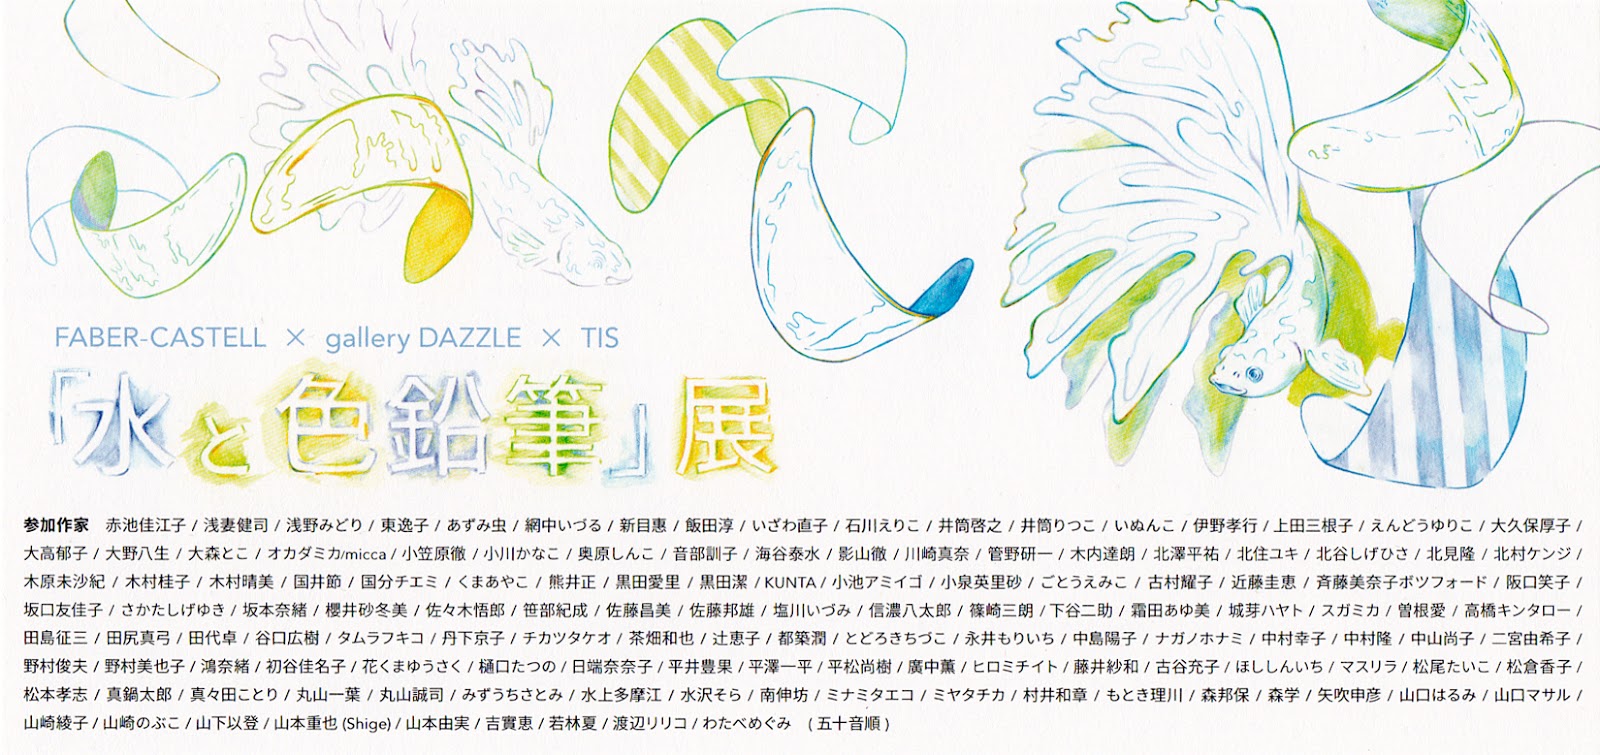 FABER-CASTELL × gallery DAZZLE × TIS
「水と色鉛筆」展
参加作家　赤池佳江子 / 浅妻健司 / 浅野みどり / 東逸子 / あずみ虫 / 網中いづる / 新目惠 / 飯田淳 / いざわ直子 / 石川えりこ / 井筒啓之 / 井筒りつこ / いぬんこ / 伊野孝行 / 上田三根子 / えんどうゆりこ / 大久保厚子 /
大高郁子 / 大野八生 / 大森とこ / オカダミカ/micca / 小笠原徹 / 小川かなこ / 奥原しんこ / 音部訓子 / 海谷泰水 / 影山徹 / 川崎真奈 / 管野研一 / 木内達朗 / 北澤平祐 / 北住ユキ / 北谷しげひさ / 北見隆 / 北村ケンジ /
木原未沙紀 / 木村桂子 / 木村晴美 / 国井節 / 国分チエミ / くまあやこ / 熊井正 / 黒田愛里 / 黒田潔 / KUNTA / 小池アミイゴ / 小泉英里砂 / ごとうえみこ / 古村耀子 / 近藤圭恵 / 斉藤美奈子ボツフォード / 阪口笑子 /
坂口友佳子 / さかたしげゆき / 坂本奈緒 / 櫻井砂冬美 / 佐々木悟郎 / 笹部紀成 / 佐藤昌美 / 佐藤邦雄 / 塩川いづみ / 信濃八太郎 / 篠崎三朗 / 下谷二助 / 霜田あゆ美 / 城芽ハヤト / スガミカ / 曽根愛 / 高橋キンタロー /
田島征三 / 田尻真弓 / 田代卓 / 谷口広樹 / タムラフキコ / 丹下京子 / チカツタケオ / 茶畑和也 / 辻恵子 / 都築潤 / とどろきちづこ / 永井もりいち / 中島陽子 / ナガノホナミ / 中村幸子 / 中村隆 / 中山尚子 / 二宮由希子 /
野村俊夫 / 野村美也子 / 鴻奈緒 / 初谷佳名子 / 花くまゆうさく / 樋口たつの / 日端奈奈子 / 平井豊果 / 平澤一平 / 平松尚樹 / 廣中薫 / ヒロミチイト / 藤井紗和 / 古谷充子 / ほししんいち / マスリラ / 松尾たいこ / 松倉香子 /
松本孝志 / 真鍋太郎 / 真々田ことり / 丸山一葉 / 丸山誠司 / みずうちさとみ / 水上多摩江 / 水沢そら / 南伸坊 / ミナミタエコ / ミヤタチカ / 村井和章 / もとき理川 / 森邦保 / 森学 / 矢吹申彦 / 山口はるみ / 山口マサル /
山崎綾子 / 山崎のぶこ / 山下以登 / 山本重也 (Shige) / 山本由実 / 吉實恵 / 若林夏 / 渡辺リリコ / わたべめぐみ　( 五十音順 )